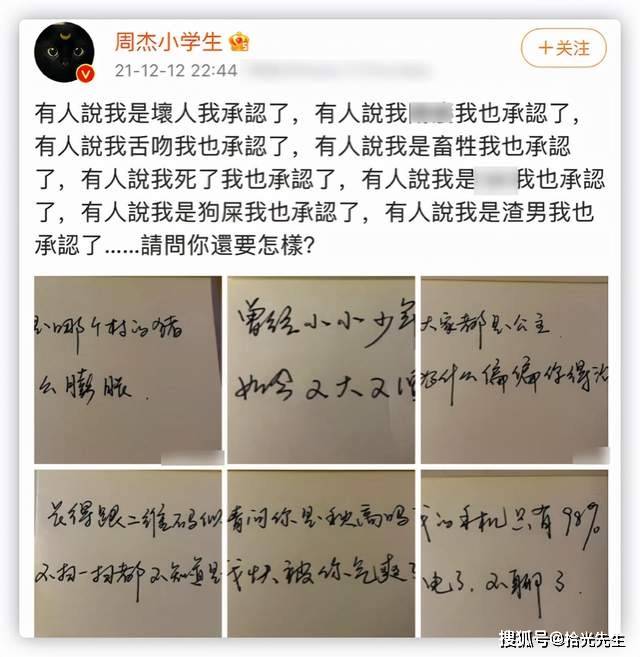 周杰小学生
+关注
21-12-12 22:44
有人說我是壞人我承認了，有人說我 我也承認了，
有人說我舌吻我也承認了，有人說我是畜牲我也承認
了，有人說我死了我也承認了，有人說我是 我也承認
了，有人說我是狗屎我也承認了，有人說我是渣男我也
承認了……請問你還要怎樣？
是哪个村的猪
么膨胀.
曾经小小少年
如今又大又
大家都是公主
为什么偏偏你得
长得跟二维码似
不扫一扫都不知道是
请问你是秋高吗
我快被你气爽了
我的手机只有98%
电了,不聊了.
搜狐号@拾光先生